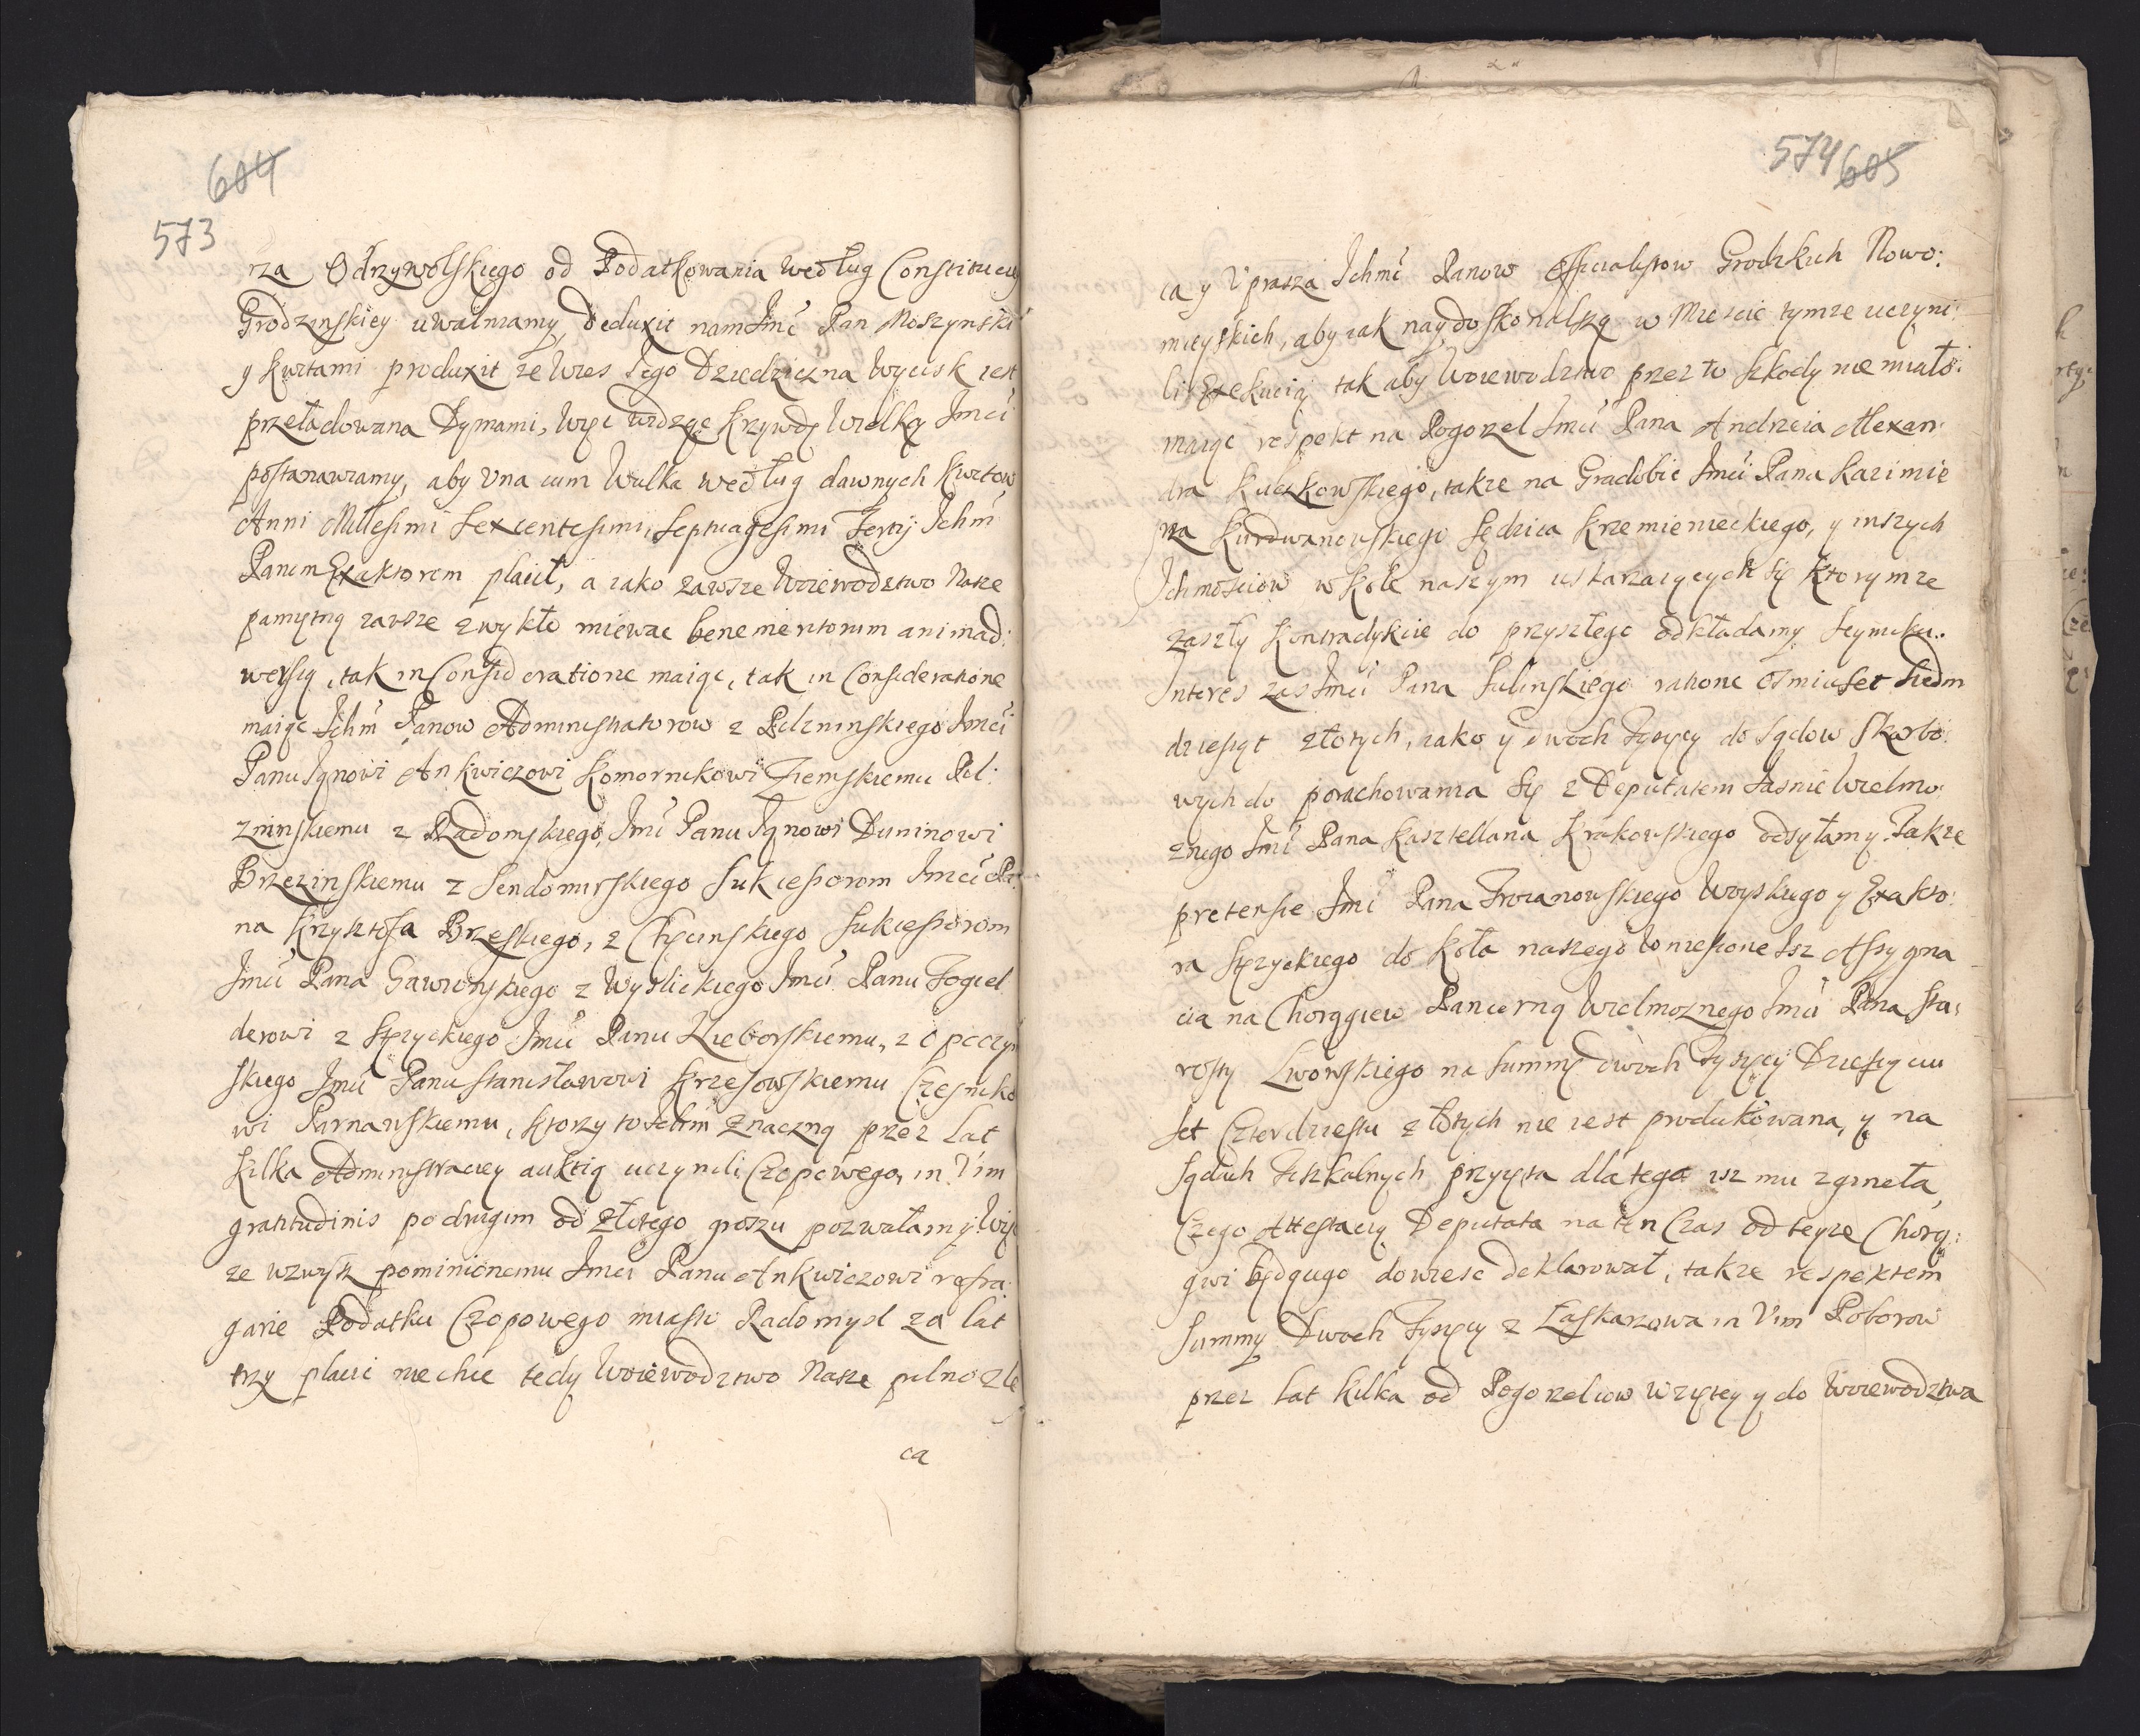 604
573
rza Odrzywolskiego od Podatkowania według Constituciey
Grodzinskiey uwalniamy, deduxit nam Jmć Pan Moszynski
y kwitami produxit ze wies Iego Dziedziczna Wycisk iest
przeładowana Dymami, Więc widząc krzywdę wielką Jmci
postanawiamy, aby una cum Wulka według dawnych kwitow
Anni Millesimi Sexcentesimi, Septuagesimi Tertij Ichm
Panom Exaktorom płacił, a iako zawsze Woiewodztwo Nasze
pamiętną zawsze zwykło miewac benemeritorum animad:
wersią, tak in Consideratione maiąc, tak in Consideratione
maiąc Ichm Panow Administratorow z Pilzninskiego Jmci
Panu Janowi Ankwiczowi Komornikowi Ziemskiemu Pil:
zninskiemu z Radomskiego, Jmć Panu Janowi Duninowi
Brzezinskiemu z Sendomirskiego Sukcessorom Jmci Pa:
na Krzysztofa Brzeskiego, z Chęcinskiego Sukcessorom
Jmci Pana Gawronskiego z Wyslickiego Jmci Panu Fogiel
derowi z Stęzyckiego Jmci Panu Lieborskiemu, z Opoczyn
skiego Jmci Panu Stanisławowi Krzesowskiemu Czesniko
wi Parnawskiemu, ktorzy to Ichm znaczną przez lat
kilka Administraciey auktią uczynili Czopowego, in Vim
gratitudinis po drugim od złotego groszu pozwalamy. Więc
ze wzwysz pominionemu Jmci Panu Ankwiczowi refra:
garie Podatku Czopowego miasto Radomysl za lat
trzy płacic niechce tedy Woiewodztwo Nasze pilno zle
ca
574 605
ca y Uprasza Ichmć Panow Officialistow Grodzkich Nowo:
mieyskich, aby iak naydoskonalszą w Miescie tymze uczyni:
li Exekucią tak aby Woiewodztwo przez to szkody nie miało:
maiąc respekt na Pogorzel Jmci Pana Andrzeia Alexan:
dra Kuczkowskiego, takze na Gradobie Jmci Pana Kazimie
rza Kurdwanowskiego Sędzica Krzemienieckiego, y inszych
Ichmosciow w kole naszym uskarzaiących się ktorymze
zaszły kontradykcie do przyszłego odkładamy Seymiku.
Interes zas Jmci Pana Sulinskiego ratione osmiuset siedm
dziesiąt złotych, iako y dwoch Tysięcy do Sądow Skarbo:
wych do porachowania się z Deputatem Iasnie Wielmo:
znego Jmć Pana Kasztellana Krakowskiego odsyłamy. Takze
pretensie Jmć Pana Troianowskiego Woyskiego y Exakto:
ra Stęzyckiego do Koła naszego wniesione Isz Assygna
cia na Chorągiew Pancerną Wielmoznego Jmci Pana Sta:
rosty Lwowskiego na Summę dwoch Tysięcy Dziesiąciu
set Czterdziestu złotych nie iest produkowana, y na
Sądach Fiszkalnych przyięta dla tego isz mu zgineła,
Czego Attestacią Deputata na ten Czas od teyze Chorą:
gwi będącego dowiesc deklarował, takze respektem
Summy Dwoch Tysięcy z Łaskarzowa in Vim Poborow
przez lat kilka od Pogorzelcow wziętey y do Woiewodztwa